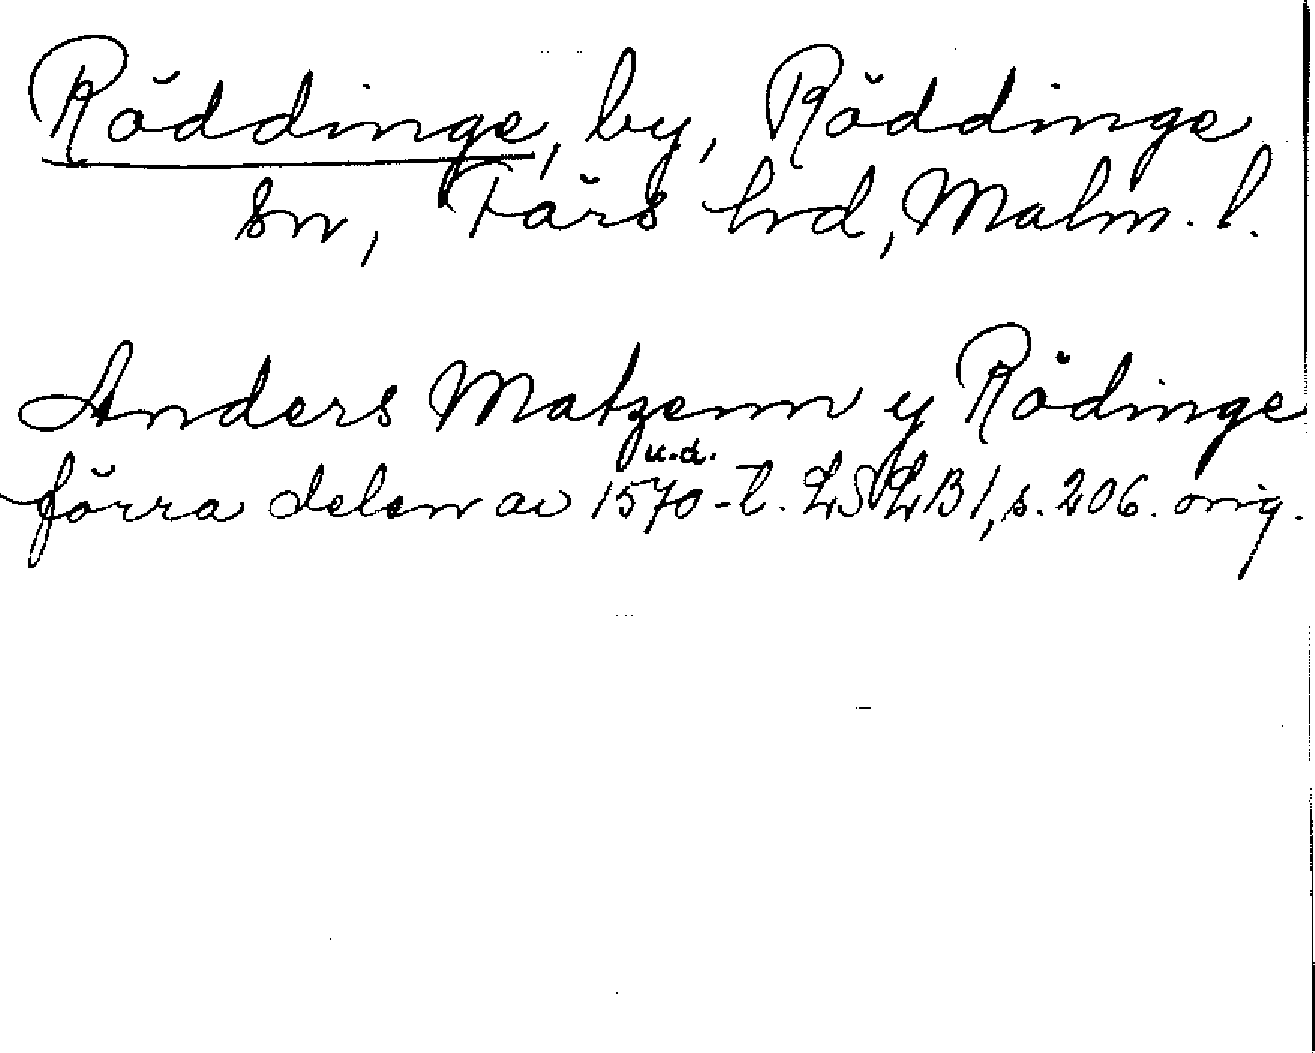 Röddinge, by, Röddinge
sn, Färs hrd, Malm. l.
Anders Matzenn y Rödinge
u.d.
förra delen av 1570-t. LSLB1, s. 206. orig.